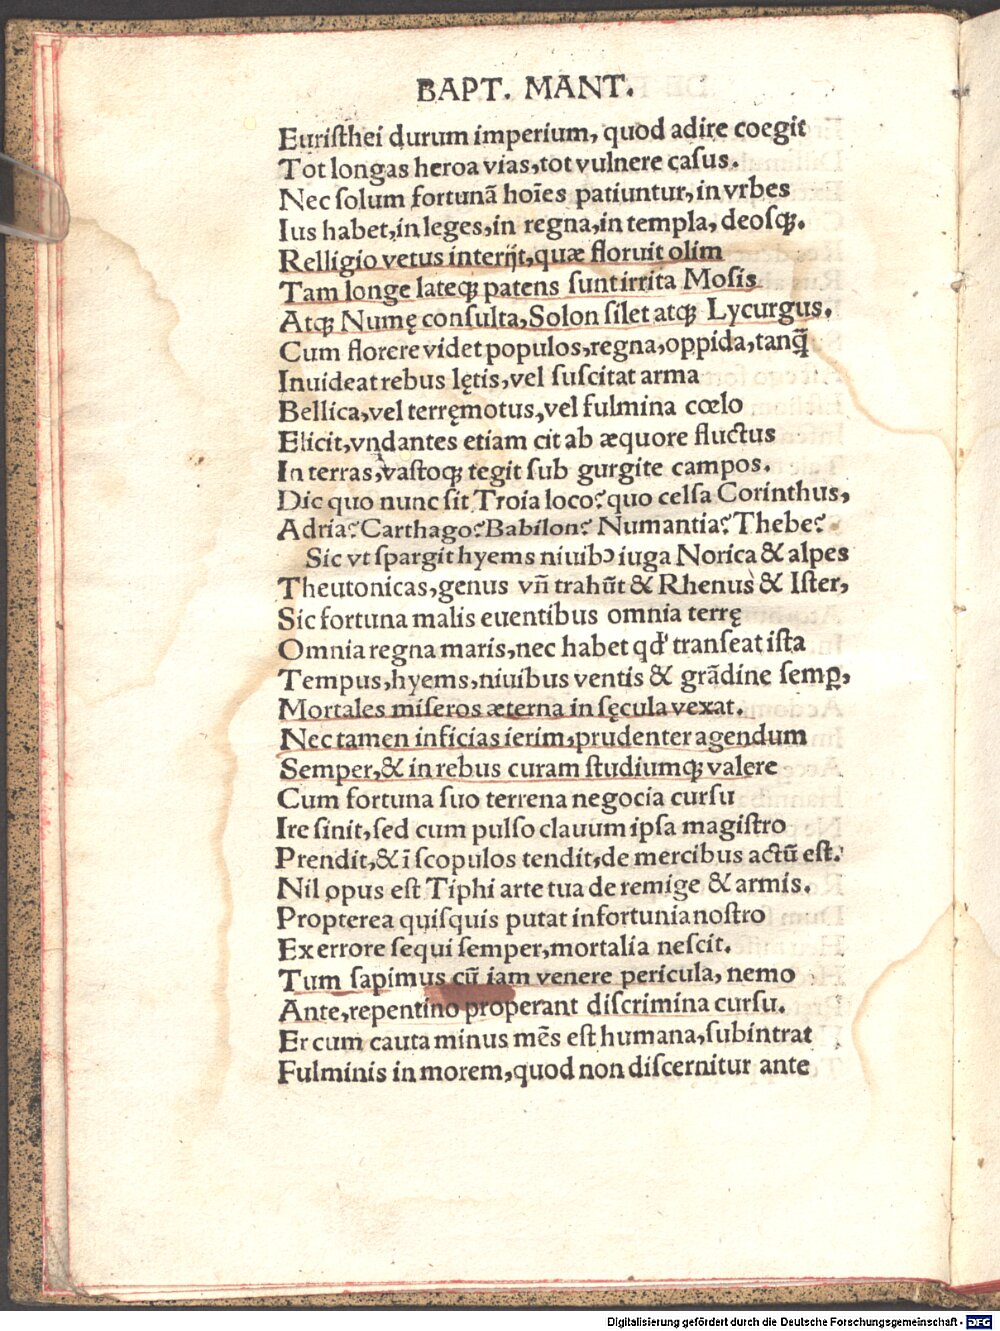 BAPT. MANT.
Euristhei durum imperium, quod adire coegit
Tot longas heroa vias, tot vulnere casus.
Nec solum fortunā hoīes patiuntur, in vrbes
Ius habet, in leges, in regna, in templa, deosqꝫ.
Relligio vetus interijt, quæ floruit olim
Tam longe lateqꝫ patens sunt irrita Mosis
Atqꝫ Numę consulta, Solon silet atqꝫ Lycurgus.
Cum florere videt populos, regna, oppida, tanq̄
Inuideat rebus lętis, vel suscitat arma
Bellica, vel terręmotus, vel fulmina cœlo
Elicit, vndantes etiam cit ab æquore fluctus
In terras, vastoqꝫ tegit sub gurgite campos.
Dic quo nunc sit Troia loco? quo celsa Corinthus,
Adria? Carthago? Babilon? Numantia? Thebe?
Sic vt spargit hyems niuibꝰ iuga Norica & alpes
Theutonicas, genus vñ trahūt & Rhenus & Ister,
Sic fortuna malis euentibus omnia terrę
Omnia regna maris, nec habet qd' transeat ista
Tempus, hyems, niuibus ventis & grādine semꝑ,
Mortales miseros æterna in sęcula vexat.
Nec tamen inficias ierim, prudenter agendum
Semper, & in rebus curam studiumqꝫ valere
Cum fortuna suo terrena negocia cursu
Ire sinit, sed cum pulso clauum ipsa magistro
Prendit, & ī scopulos tendit, de mercibus actū est.
Nil opus est Tiphi arte tua de remige & armis.
Propterea quisquis putat infortunia nostro
Ex errore sequi semper, mortalia nescit.
Tum sapimus cū iam venere pericula, nemo
Ante, repentino properant discrimina cursu.
Er cum cauta minus mēs est humana, subintrat
Fulminis in morem, quod non discernitur ante
Digitalisierung gefördert durch die Deutsche Forschungsgemeinschaft - DFG